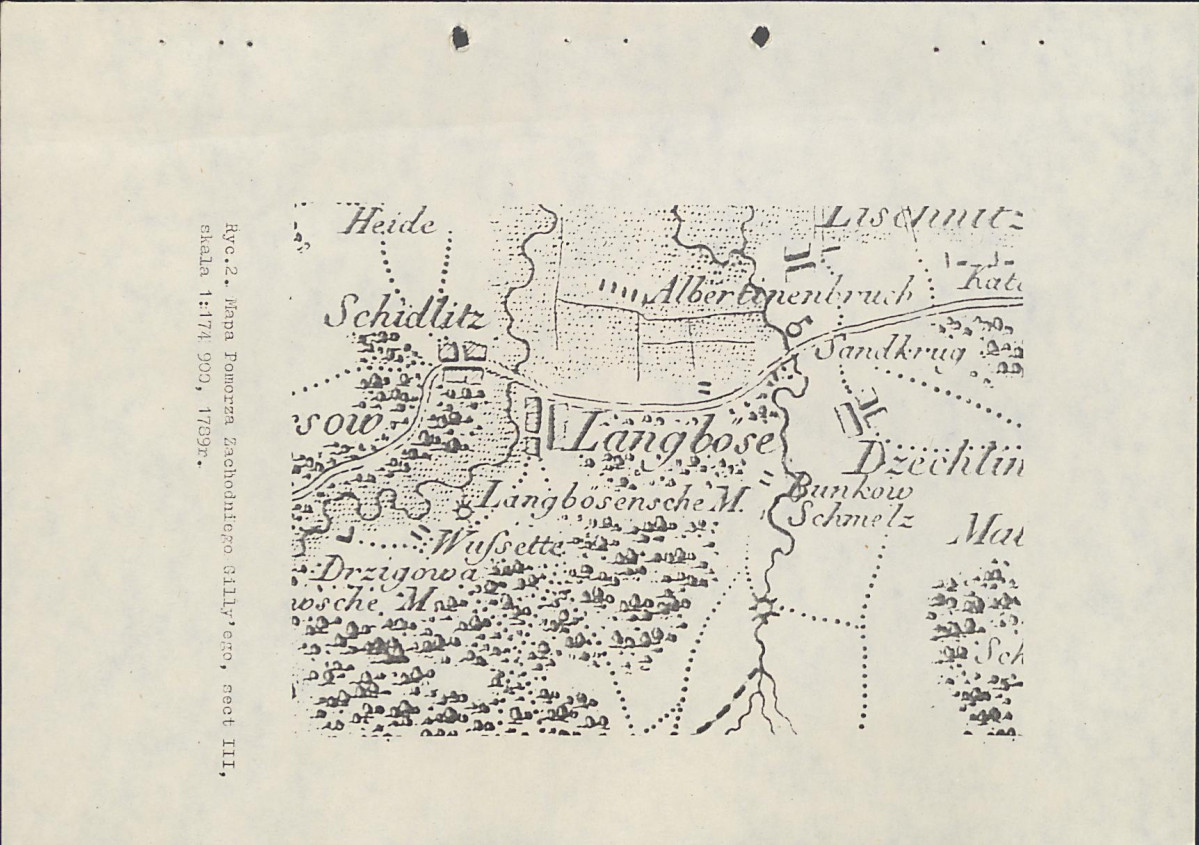 Heide
Lischnitz
Kat
Albertinenbruch
Schidlitz
Sandkrug
sow
Langböse
Dzechlin
Langbösensche M.
Bunkow
Schmelz
Mat
Wussette
Drzigowa
wsche M
Sch
Ryc.2. Mapa Pomorza Zachodniego Gilly'ego, sect III,
skala 1:174 900, 1789r.